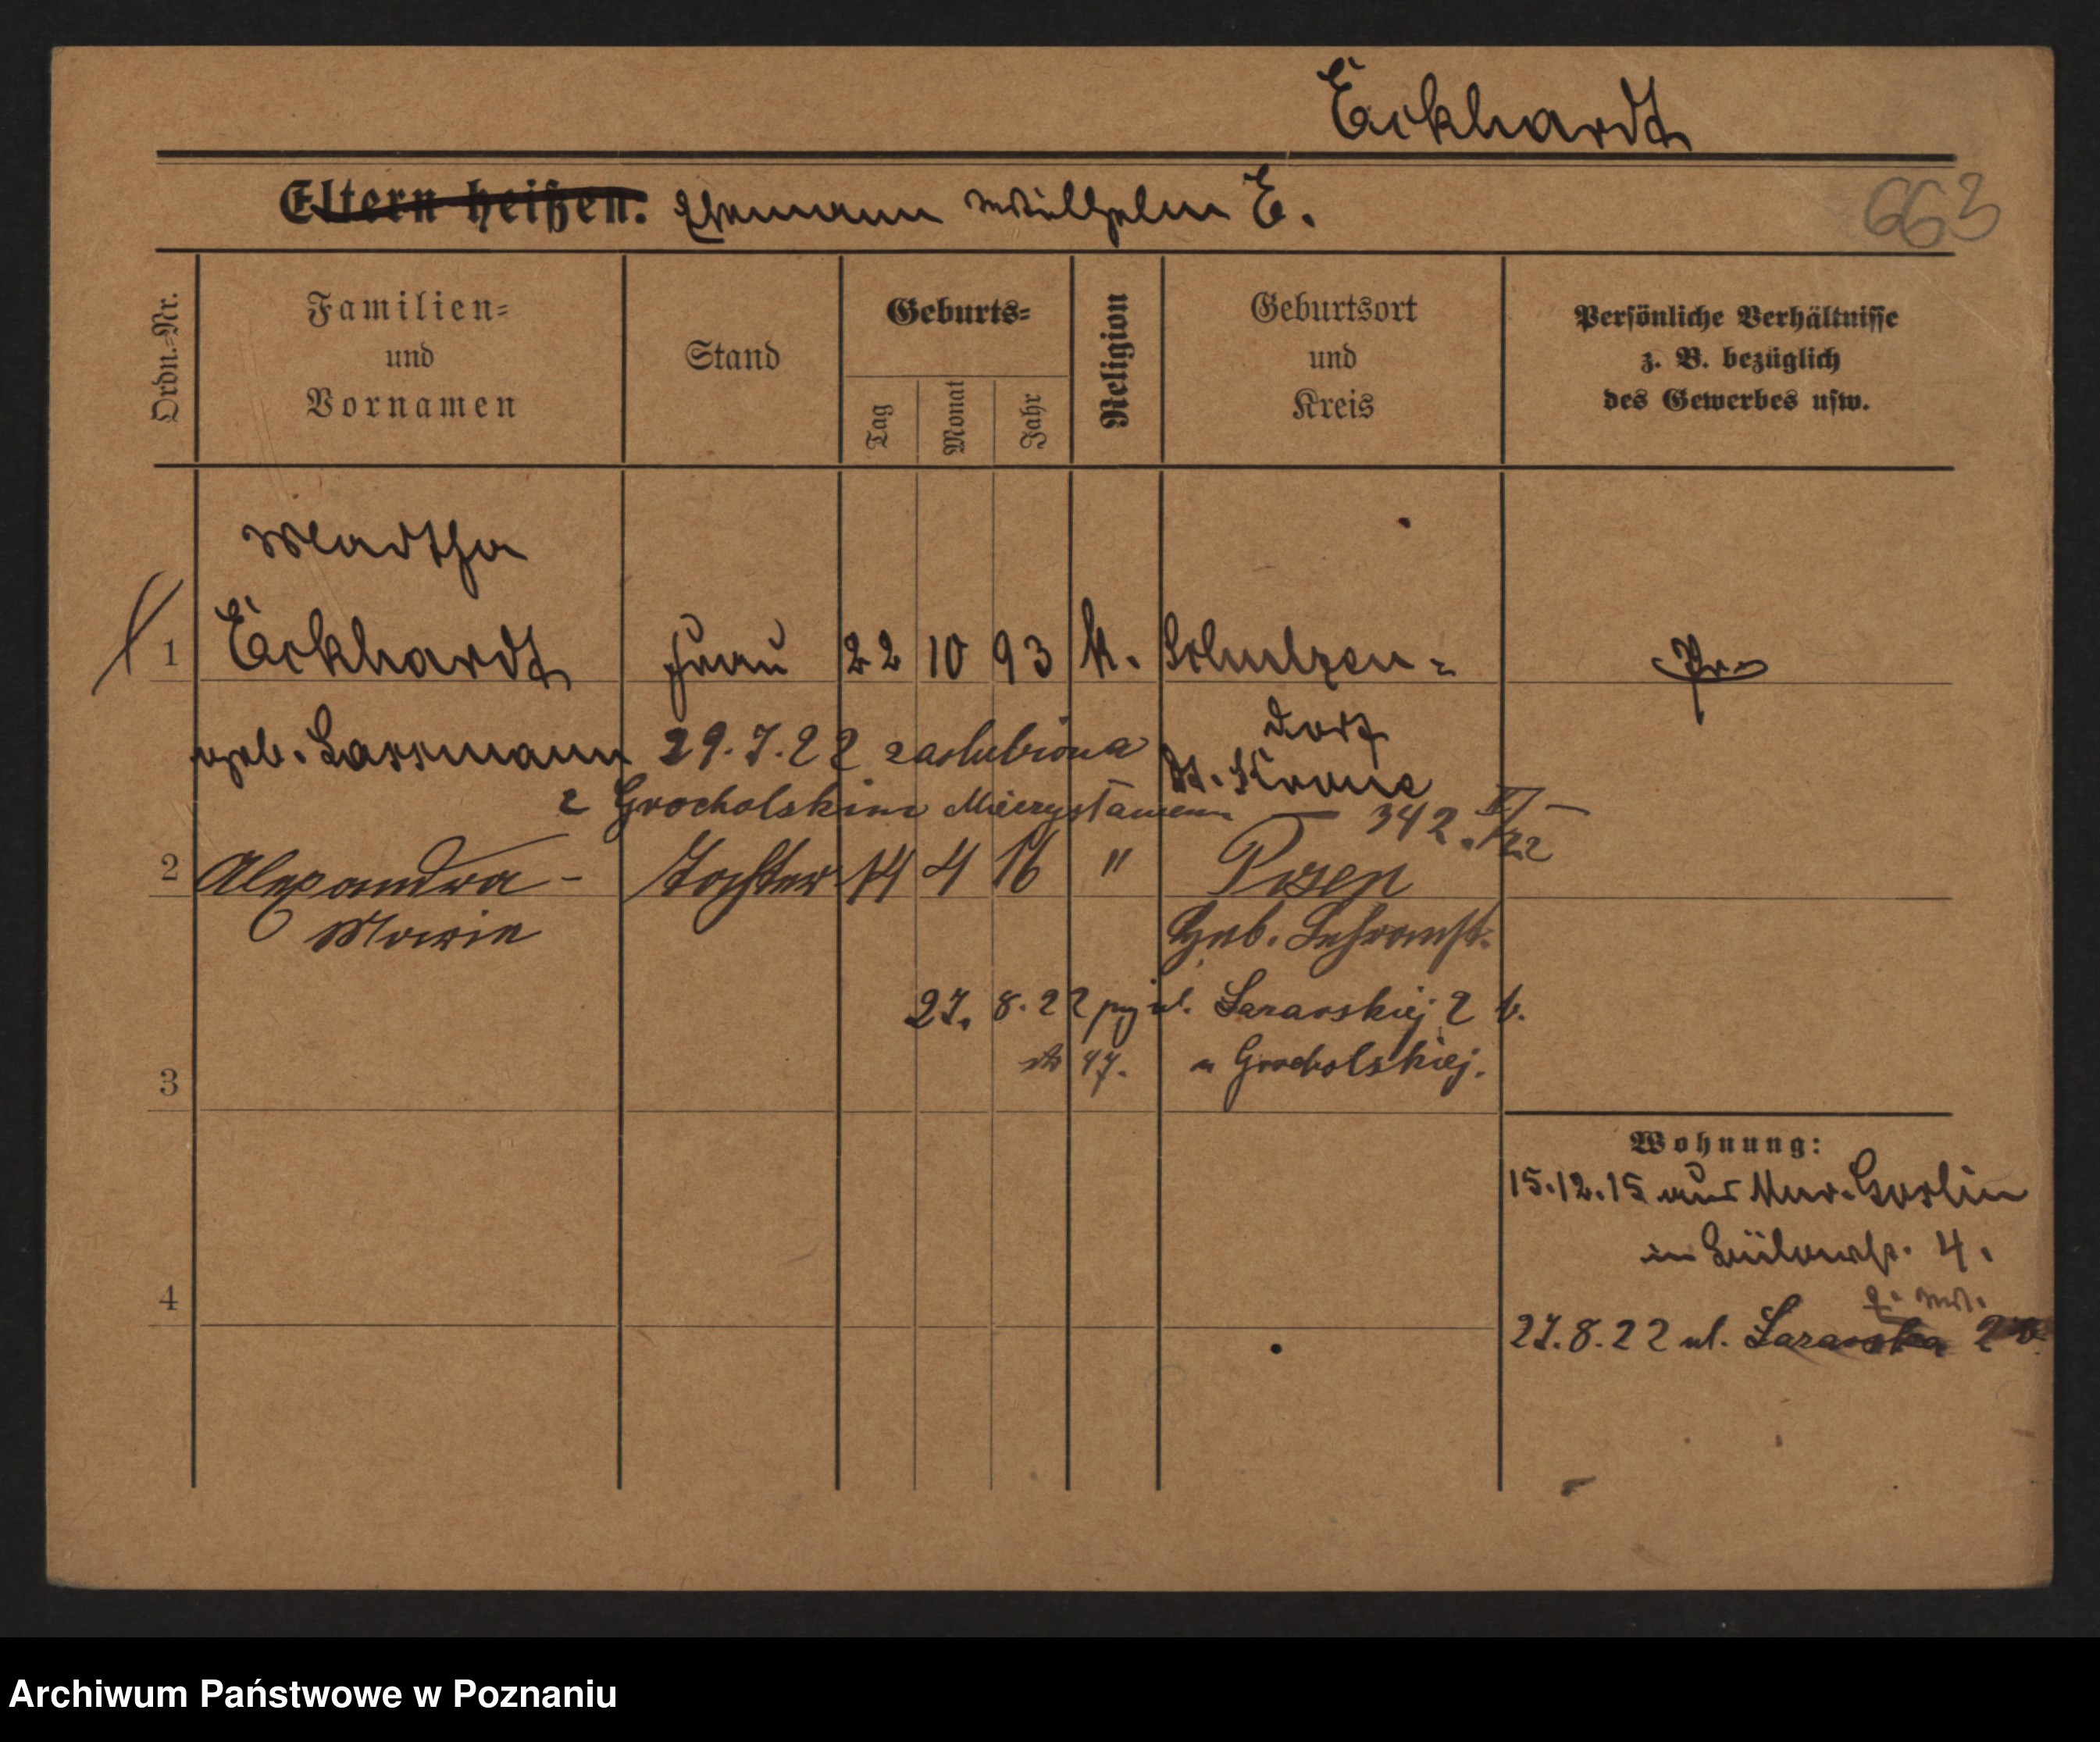 Eckhardt
Eltern heißen: Ehemann Wilhelm E.
663
Ordn.-Nr.
Familien-
und
Vornamen
Stand
Geburts-
Tag
Monat
Jahr
Religion
Geburtsort
und
Kreis
Persönliche Verhältnisse
z. B. bezüglich
des Gewerbes usw.
Martha
1 Eckhardt Frau 22 10 93 k. Schulzen-
Pr.
geb. Lassmann 29.7.22 zaślubiona
dorf
Dt. Krone
z Grocholskim Mieczysławem 342.
2 Alexandra- Tochter 14 4 16 " Posen
Marie
Heb. Lehranst.
27. 8. 22 ul. Lazarskiej 2 b.
47. u Grocholskiej.
3
Wohnung:
15.12.15 aus Mur. Goslin
in Bülowstr. 4.
4
27.8.22 ul. Lazarska 2b
Archiwum Państwowe w Poznaniu